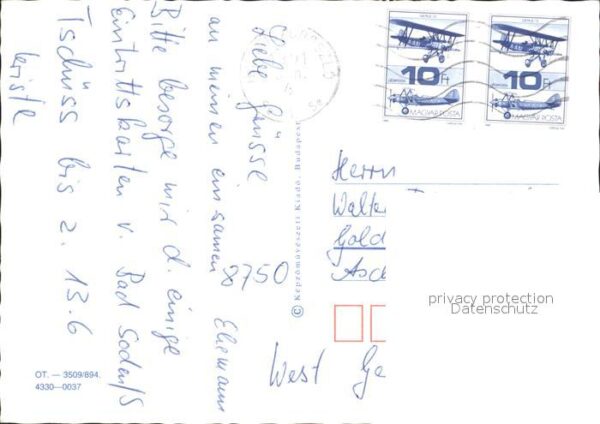 Liebe Grüsse
an meinen einsamen Ehemann
Bitte besorge mir d. einige
Eintrittskarten v. Bad Soden/S
Tschüss bis z. 13.6
10 Ft
MAGYAR POSTA
10 Ft
MAGYAR POSTA
© Képzőművészeti Kiadó, Budapest
Herrn
Walte
Gold
Asc
8750
West Ge
privacy protection
Datenschutz
OT. — 3509/894.
4330—0037